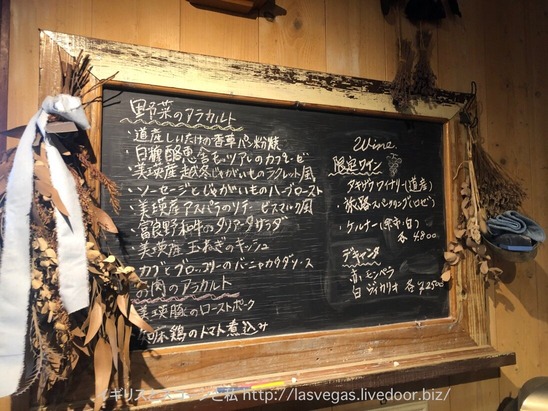 野菜のアラカルト
・道産しいたけの香草パン粉焼
・白糠酪恵舎モッツアレラのカプレーゼ
・美瑛産越冬じゃがいものラクレット風
・ソーセージとじゃがいものハーブロースト
・美瑛産アスパラのソテー ビスマルク風
・富良野和牛のタリアータサラダ
・美瑛産玉ねぎのキッシュ
カブとブロッコリーのバーニャカウダソース
お肉のアラカルト
美瑛豚のローストポーク
知床鶏のトマト煮込み
Wine.
限定ワイン
タキザワワイナリー(道産)
旅路スパークリング(ロゼ)
・ケルナー(余市・白)
各4.800
・デキャンタ
赤 モンペラ
白 各
http://lasvegas.livedoor.biz/